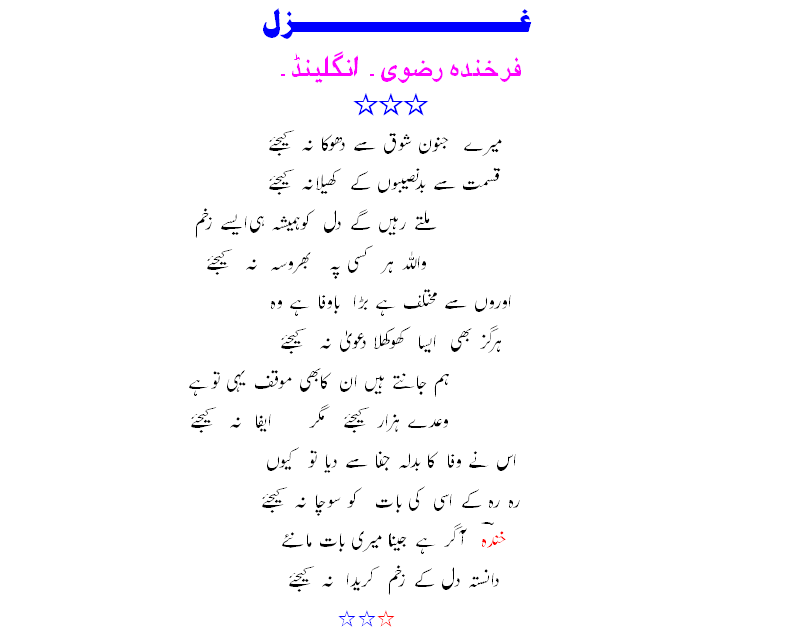 غـــــــــزل
فرخندہ رضوی۔ انگلینڈ۔
☆☆☆
میرے جنون شوق سے دھوکا نہ کیجئے
قسمت سے بدنصیبوں کے کھیلا نہ کیجئے
ملتے رہیں گے دل کو ہمیشہ ہی ایسے زخم
واللہ ہر کسی پہ بھروسہ نہ کیجئے
اوروں سے مختلف ہے بڑا باوفا ہے وہ
ہرگز بھی ایسا کھوکھلا دعویٰ نہ کیجئے
ہم جانتے ہیں ان کا بھی موقف یہی تو ہے
وعدے ہزار کیجئے مگر ایفا نہ کیجئے
اس نے وفا کا بدلہ جفا سے دیا تو کیوں
رہ رہ کے اسی کی بات کو سوچا نہ کیجئے
خندہ آگر ہے جینا میری بات مانئے
دانستہ دل کے زخم کریدا نہ کیجئے
☆☆☆